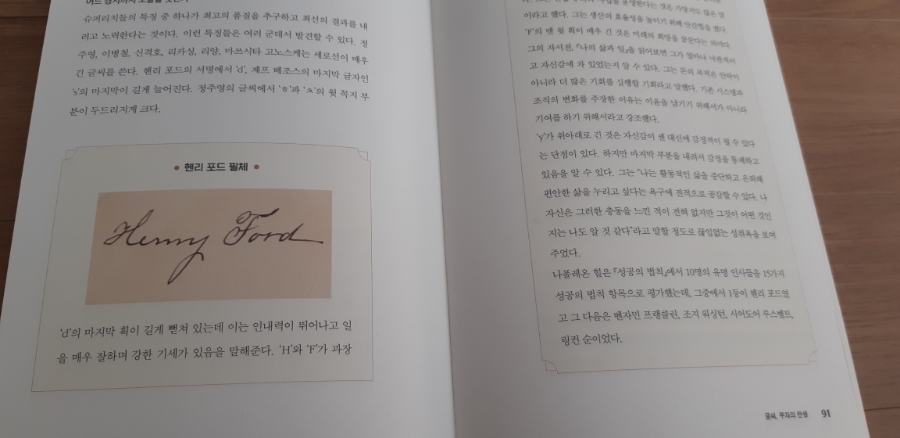 슈퍼리치들의 특징 중 하나가 최고의 품질을 추구하고 최선의 결과를 내
려고 노력한다는 것이다. 이런 특징들은 여러 군데서 발견할 수 있다. 정
주영, 이병철, 신격호, 리카싱, 리양, 마쓰시타 고노스케는 세로선이 매우
긴 글씨를 쓴다. 헨리 포드의 서명에서 'd', 제프 베조스의 마지막 글자인
's'의 마지막이 길게 늘어진다. 정주영의 글씨에서 'ㅎ'과 'ㅊ'의 윗 꼭지 부
분이 두드러지게 크다.
헨리 포드 필체
Henry Ford
'd'의 마지막 획이 길게 뻗쳐 있는데 이는 인내력이 뛰어나고 일
을 매우 잘하며 강한 기세가 있음을 말해준다. 'H'와 'F'가 과장
이라고 했다. 그는 생산의 효율성을 높이기 위해
'F'의 맨 윗 획이 매우 긴 것은 미래의 희망을 꿈꾼다는 의미다.
그의 자서전, 『나의 삶과 일』을 읽어보면 그가 얼마나 낙관적이
고 자신감에 차 있었는지 알 수 있다. 그는 돈의 목적은 안락이
아니라 더 많은 기회를 실행할 기회라고 말했다. 기존 시스템과
조직의 변화를 주장한 이유는 이윤을 남기기 위해서가 아니라
기여를 하기 위해서라고 강조했다.
'y'가 위아래로 긴 것은 자신감이 센 대신에 감정적이 될 수 있다
는 단점이 있다. 하지만 마지막 부분을 내려서 감정을 통제하고
있음을 알 수 있다. 그는 "나는 활동적인 삶을 중단하고 은퇴해
편안한 삶을 누리고 싶다는 욕구에 전적으로 공감할 수 있다. 나
자신은 그러한 충동을 느낀 적이 전혀 없지만 그것이 어떤 것인
지는 나도 알 것 같다"라고 말할 정도로 끊임없는 성취욕을 보여
주었다.
나폴레온 힐은 『성공의 법칙』에서 10명의 유명 인사들을 15가지
성공의 법칙 항목으로 평가했는데, 그중에서 1등이 헨리 포드였
고 그 다음은 벤자민 프랭클린, 조지 워싱턴, 시어도어 루스벨트,
링컨 순이었다.
글씨, 부자의 반열 91